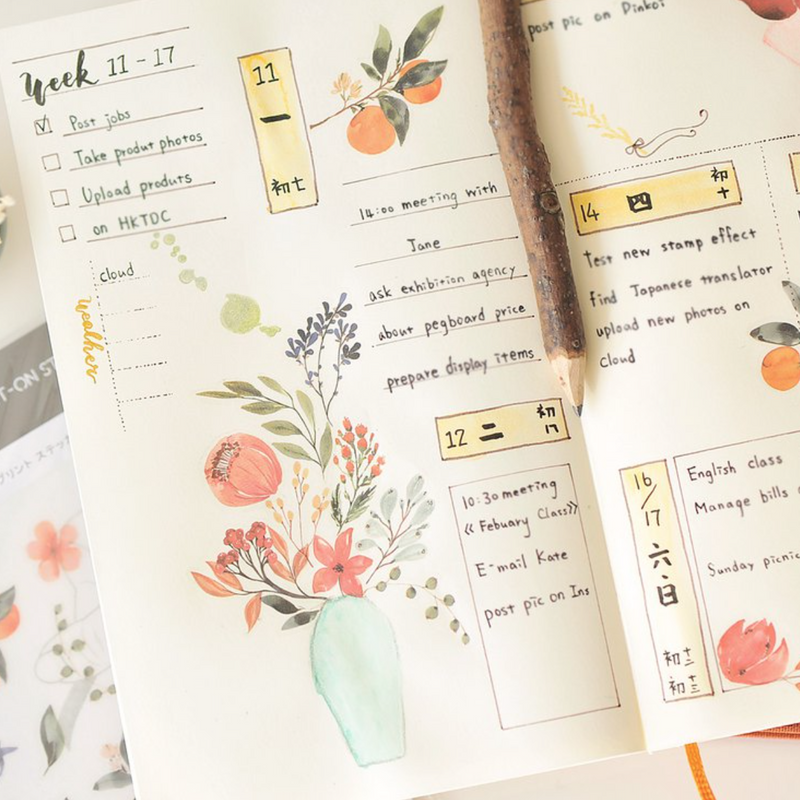 Week 11 - 17
Post jobs
Take produt photos
Upload produts
on HKTDC
cloud
Weather
11
一
初七
14:00 meeting with
Jane
ask exhibition agency
about pegboard price
prepare display items
12 二 初八
10:30 meeting
《Febuary Class》
E-mail Kate
post pic on Ins
post pic on Dinkoi
14 四 初十
Test new stamp effect
find Japanese translator
upload new photos on
cloud
16/17
六
日
初十二
初十三
English class
Manage bills
Sunday picnic
T-ON ST
プリント ステッカ